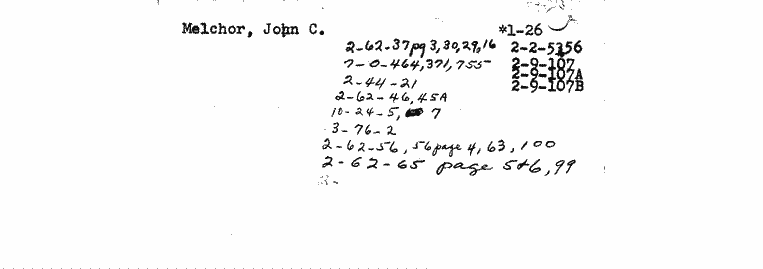 Melchor, John C. *1-26
2-62-37pg 3,30,29,16 2-2-5356
7-0-464,371,755 2-9-107
2-44-21 2-9-107A
2-62-46,45A 2-9-107B
10-24-5, 7
3-76-2
2-62-56, 56page 4, 63, 100
2-62-65 page 5+6,99